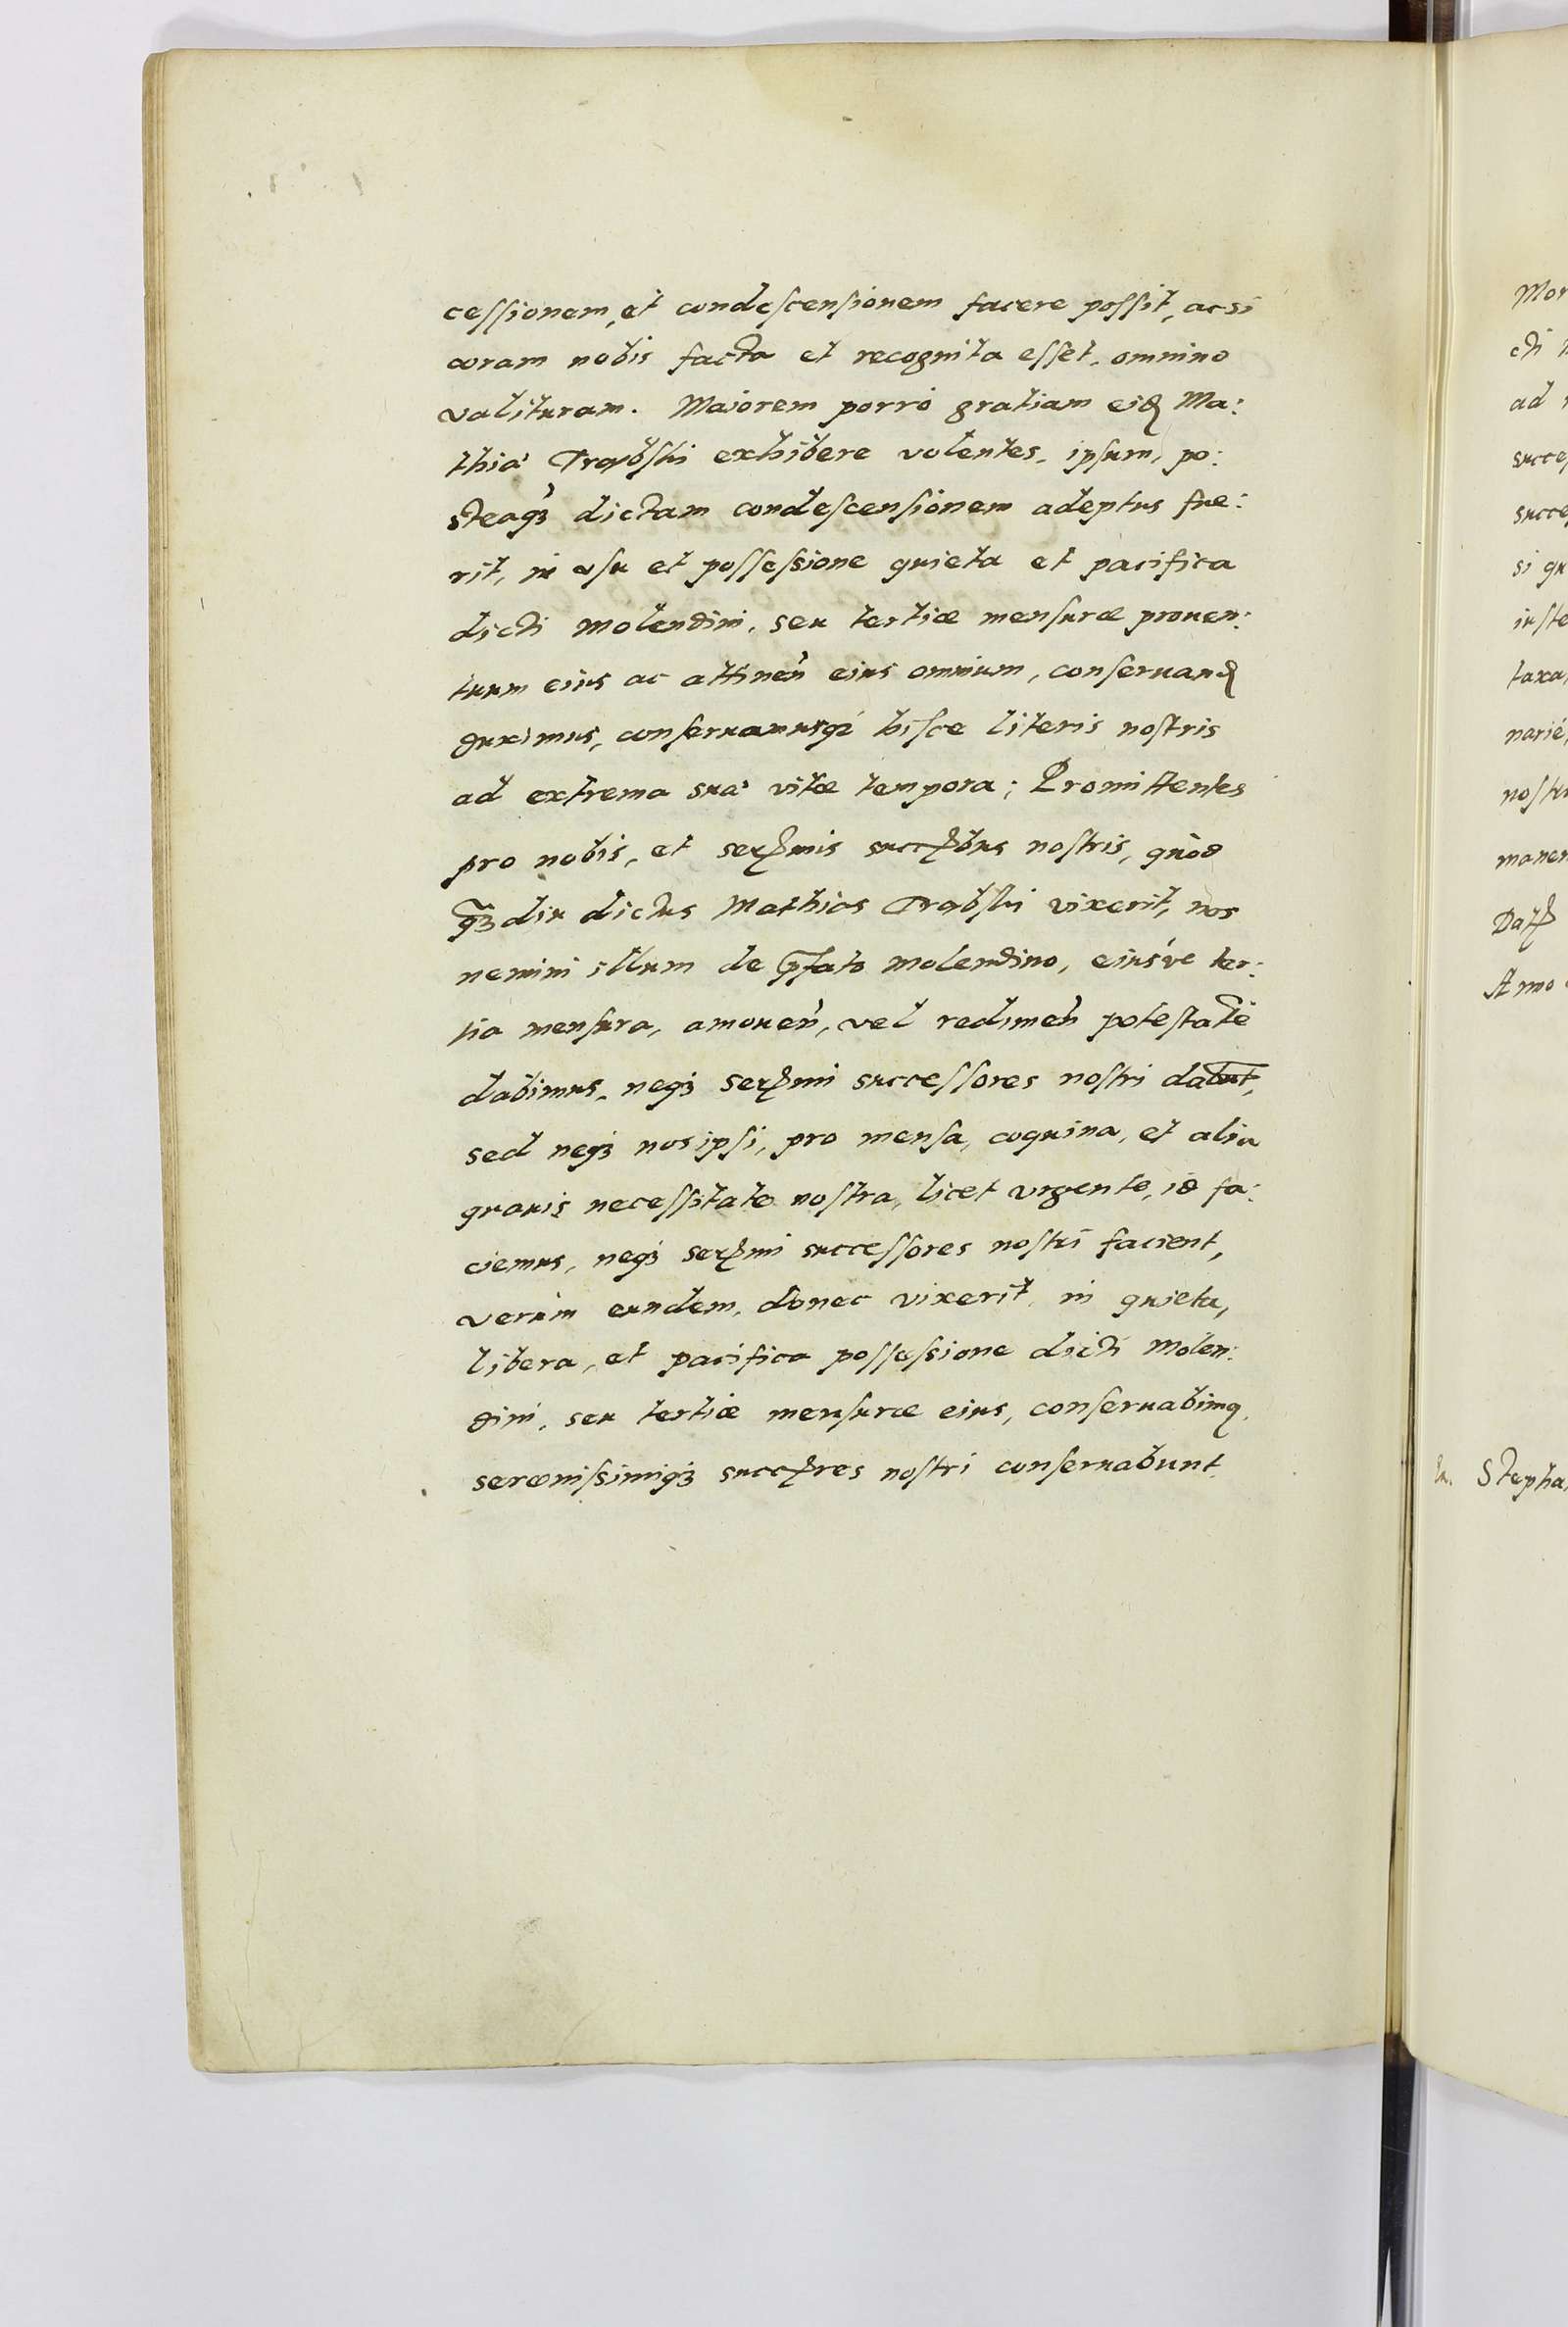 cessionem, et condescensionem facere possit, ac si
coram nobis facta et recognita esset, omnino
valituram. Maiorem porrò gratiam eid Ma:
thiæ exhibere volentes, ipsum, po:
steaqȝ dictam condescensionem adeptus fue:
rit, in usu et possessione quieta et pacifica
dicti molendini, seu tertiæ mensuræ prouen:
tuum eius ac attineñ eius omnium, conseruand
duximus, conseruamusqȝ hisce literis nostris
ad extrema suæ vitæ tempora; Promittentes
pro nobis, et sermis succrbus nostris, quòd
qȝ diu dictus Mathias vixerit, nos
nemini illum de pfato molendino, eiusve ter:
tia mensura, amoueñ, vel redimeñ potestatē
dabimus, neqȝ sermi successores nostri dabut,
sed neqȝ nos ipsi, pro mensa, coquina, et alia
quauis necessitate nostra, licet vrgente, id fa:
ciemus, neqȝ sermi successores nostri facient,
verùm eundem, donec vixerit, in quieta,
libera, et pacifica possessione dicti Molen:
dini, seu tertiæ mensuræ eius, conseruabimq,
serenissimiqȝ succres nostri conseruabunt
Mor
cti
ad
succes
succes
si qu
iuste
taxa,
narié,
nostr
manen
Dat
Anno
Stepha